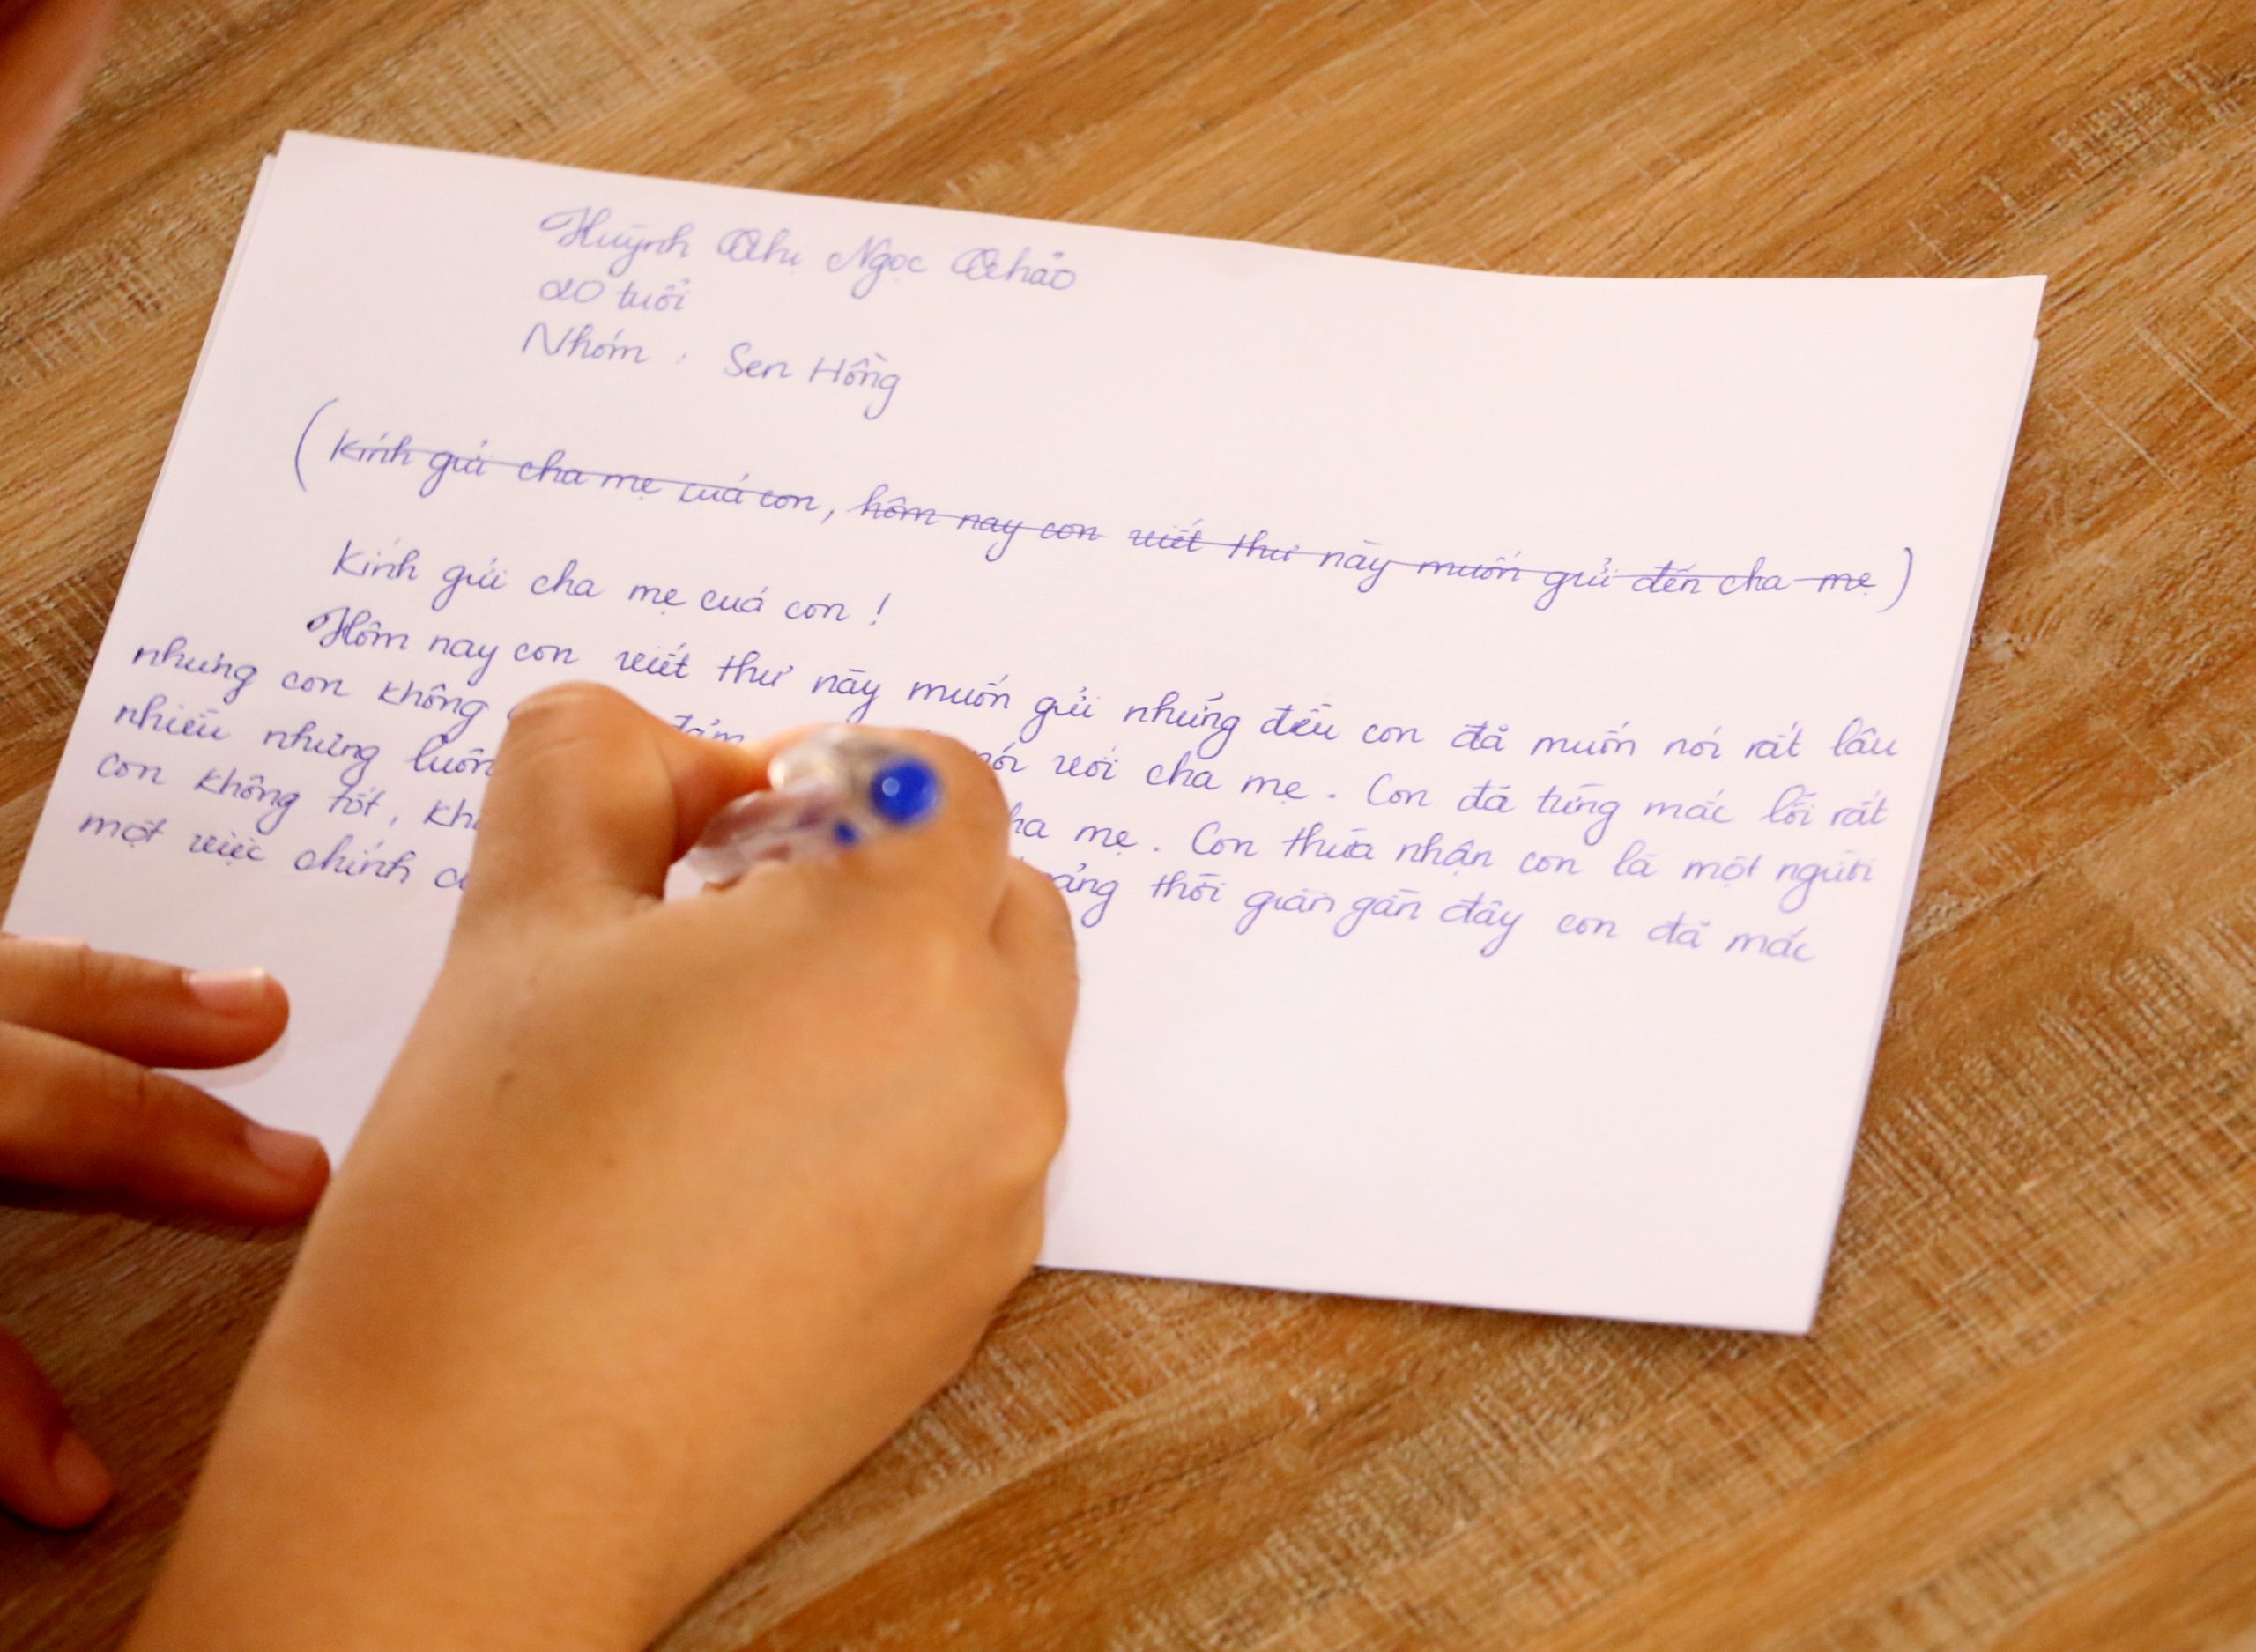 Huỳnh Thị Ngọc Thảo
20 tuổi
Nhóm : Sen Hồng
(Kính gửi cha mẹ của con, hôm nay con viết thư này muốn gửi đến cha mẹ)
Kính gửi cha mẹ của con !
Hôm nay con viết thư này muốn gửi những đều con đã muốn nói rất lâu
nhưng con không nói với cha mẹ. Con đã từng mắc lỗi rất
nhiều nhưng luôn cha mẹ. Con thừa nhận con là một người
con không tốt, thời gian gần đây con đã mắc
một việc chính